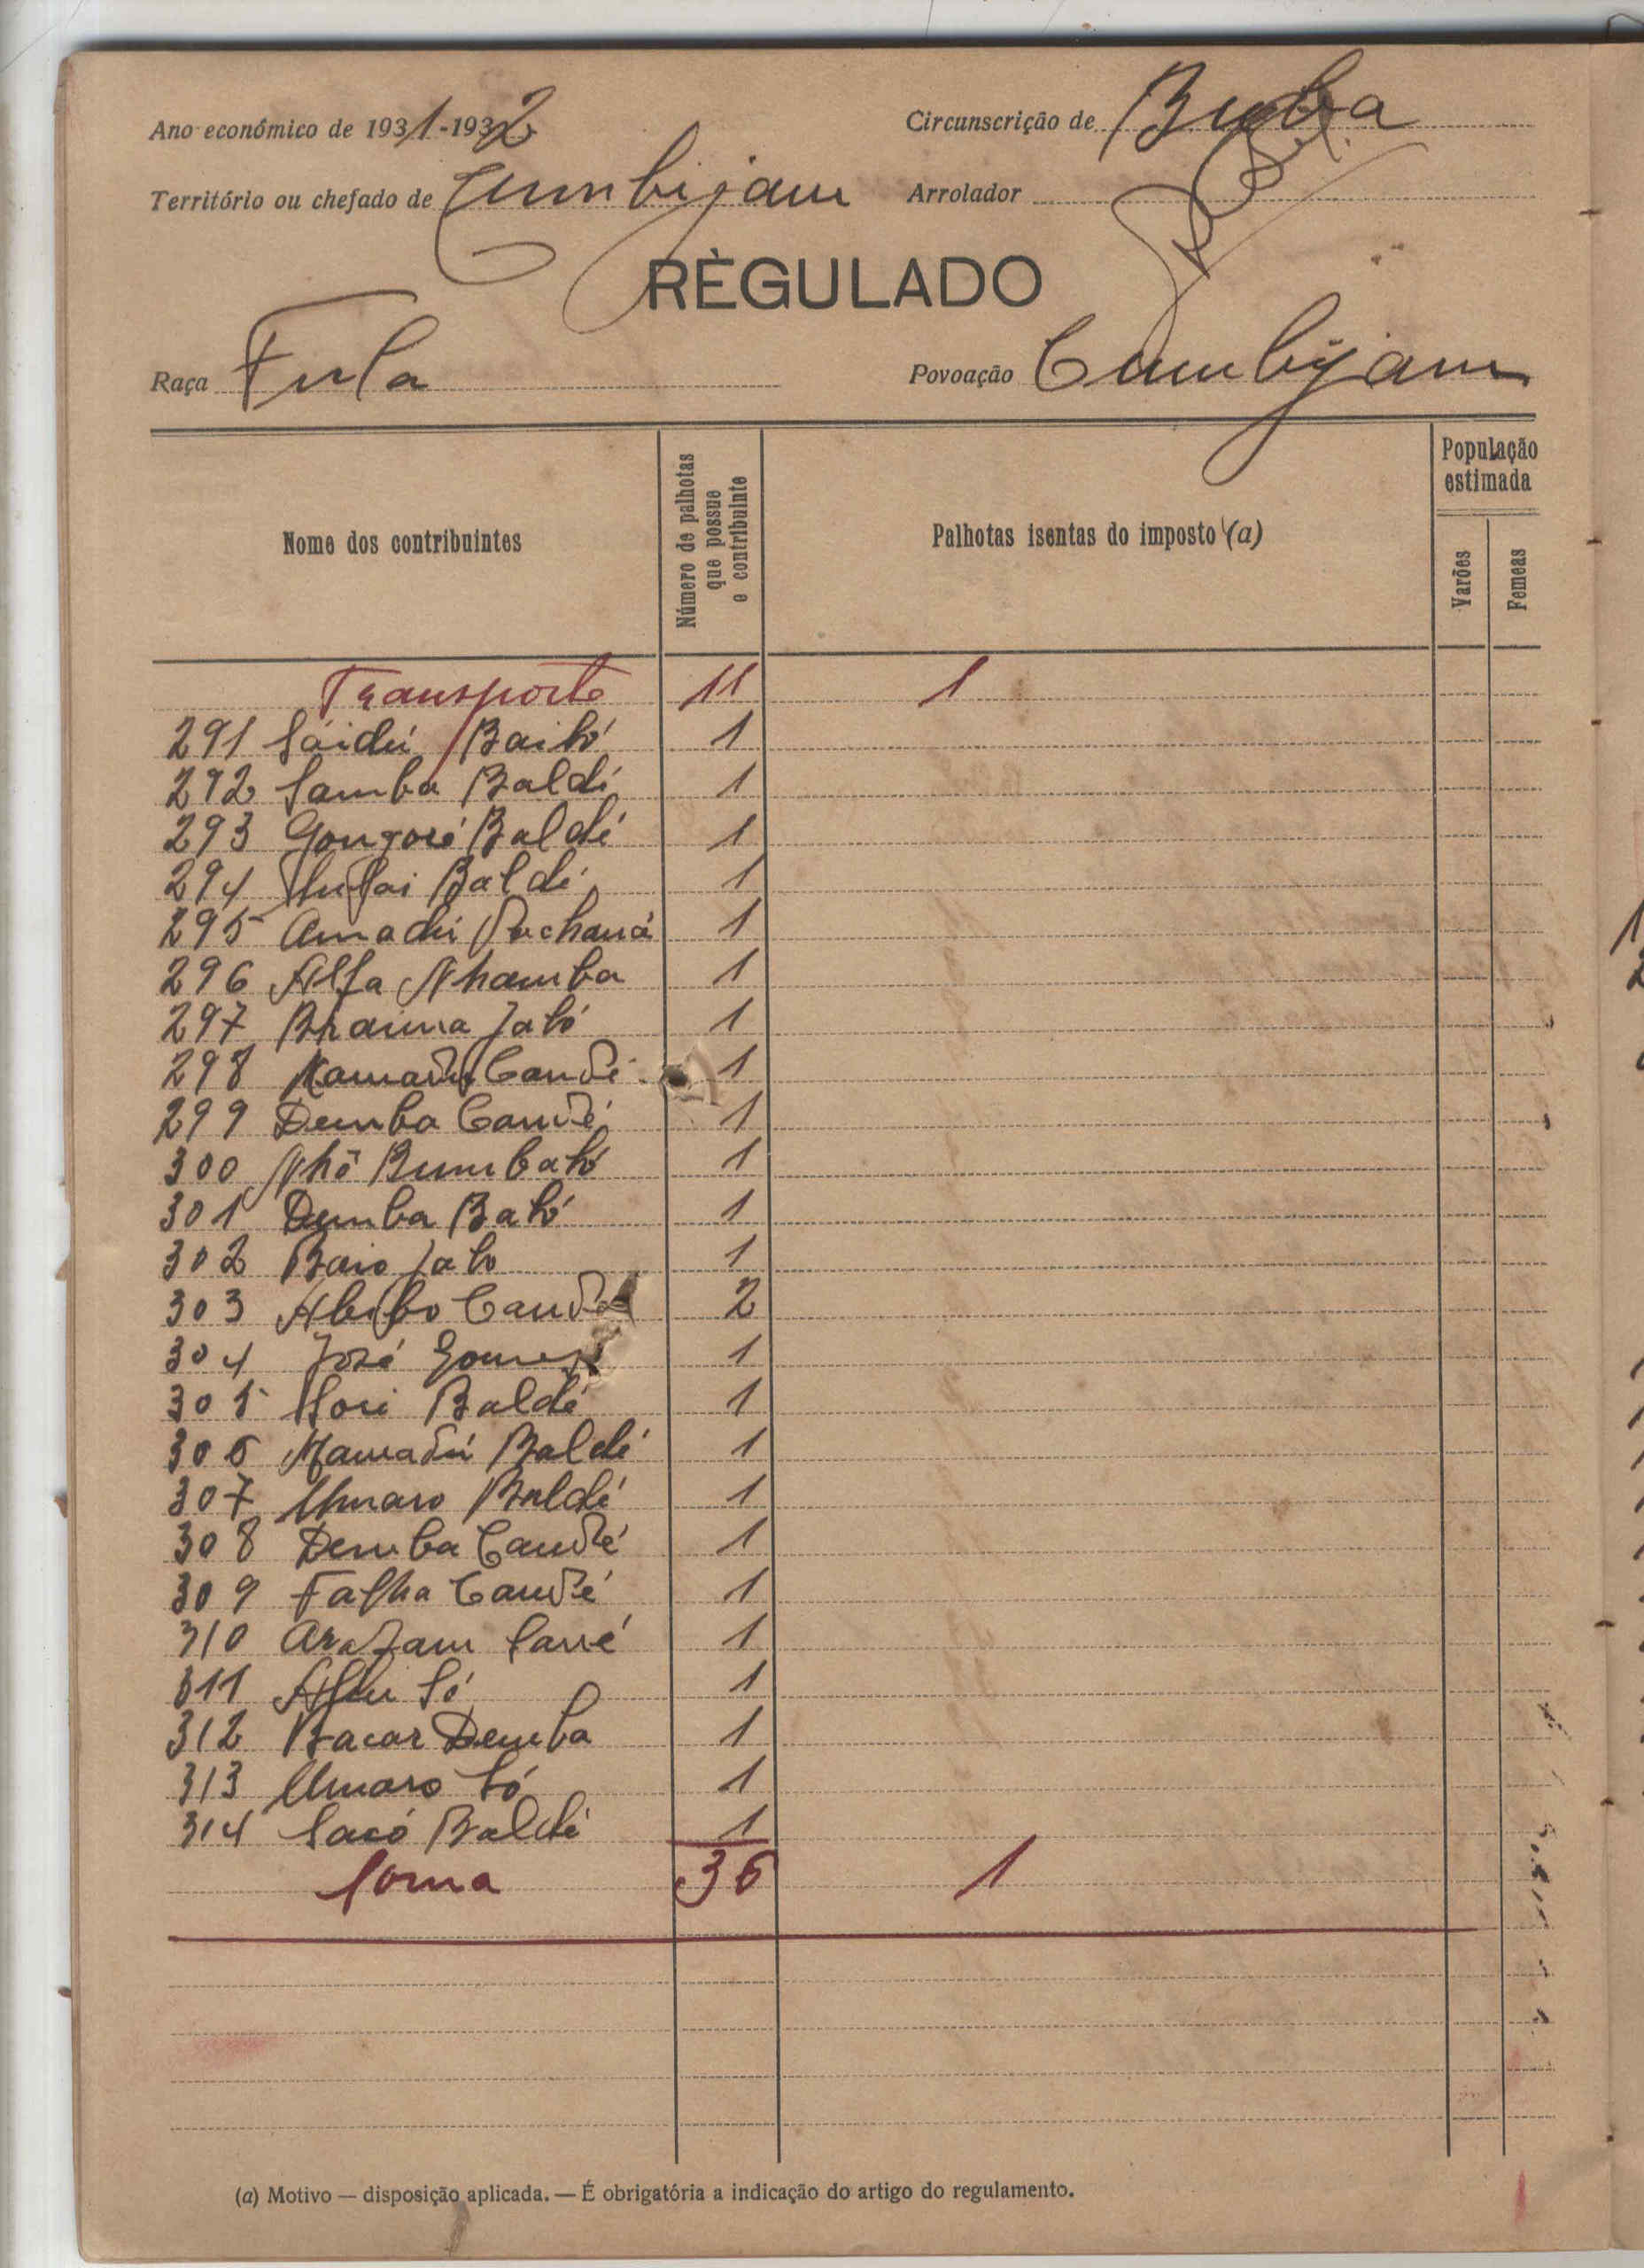 Ano económico de 1931-1932
Circunscrição de Buba
Território ou chefado de Cumbijam
Arrolador
RÈGULADO
Raça Fula
Povoação Cumbijam
Nome dos contribuintes
Número de palhotas que possue e contribuinte
Palhotas isentas do imposto (a)
População estimada
Varões
Femeas
Transporte 11 1
291 Sáidú Bailó 1
292 Samba Baldé 1
293 Baldé 1
294 Baldé 1
295 Amadú 1
296 Alfa Nhamba 1
297 Braima Jaló 1
298 Mamadú Candé 1
299 Demba Candé 1
300 Nhô 1
301 Demba Baló 1
302 Baio Jaló 1
303 Abibo Candé 2
304 José Gomes 1
305 Sori Baldé 1
306 Mamadú Baldé 1
307 Umaro Baldé 1
308 Demba Candé 1
309 Falha Candé 1
310 Arafam Sané 1
311 Só 1
312 Bacar Demba 1
313 Umaro Só 1
314 Sacó Baldé 1
Soma 36 1
(a) Motivo — disposição aplicada. — É obrigatória a indicação do artigo do regulamento.